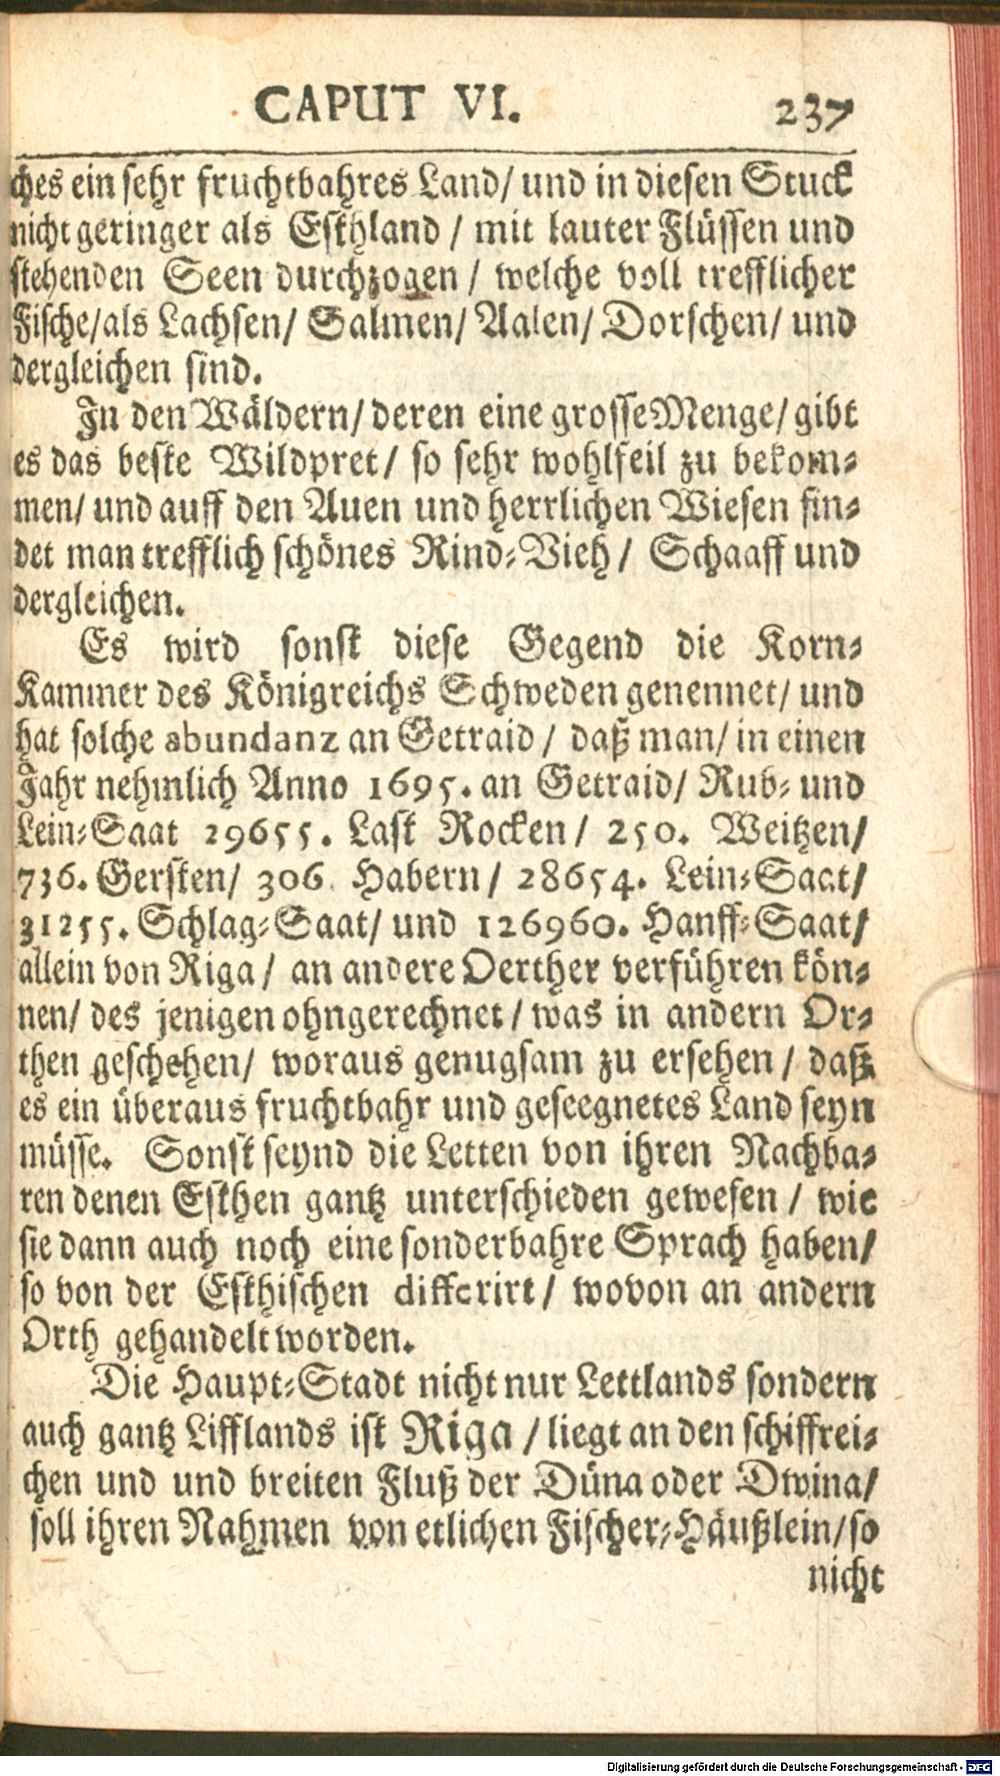 CAPUT VI. 237
ches ein sehr fruchtbahres Land/ und in diesen Stuck
nicht geringer als Esthland / mit lauter Flüssen und
stehenden Seen durchzogen / welche voll trefflicher
Fische/als Lachsen/ Salmen/ Aalen/ Dorschen/ und
dergleichen sind.
In den Wäldern/ deren eine grosse Menge/ gibt
es das beste Wildpret/ so sehr wohlfeil zu bekom-
men/ und auff den Auen und herrlichen Wiesen fin-
det man trefflich schönes Rind-Vieh / Schaaff und
dergleichen.
Es wird sonst diese Gegend die Korn-
Kammer des Königreichs Schweden genennet/ und
hat solche abundanz an Getraid / daß man/ in einen
Jahr nehmlich Anno 1695. an Getraid/ Rub- und
Lein-Saat 29655. Last Rocken / 250. Weitzen/
736. Gersten/ 306. Habern / 28654. Lein-Saat/
31255. Schlag-Saat/ und 126960. Hanff-Saat/
allein von Riga / an andere Oerther verführen kön-
nen/ des jenigen ohngerechnet / was in andern Or-
then geschehen/ woraus genugsam zu ersehen / daß
es ein überaus fruchtbahr und geseegnetes Land seyn
müsse. Sonst seynd die Letten von ihren Nachba-
ren denen Esthen gantz unterschieden gewesen / wie
sie dann auch noch eine sonderbahre Sprach haben/
so von der Esthischen differirt / wovon an andern
Orth gehandelt worden.
Die Haupt-Stadt nicht nur Lettlands sondern
auch gantz Lifflands ist Riga / liegt an den schiffrei-
chen und und breiten Fluß der Düna oder Dwina/
soll ihren Nahmen von etlichen Fischer-Häußlein/so
nicht
Digitalisierung gefördert durch die Deutsche Forschungsgemeinschaft - DFG